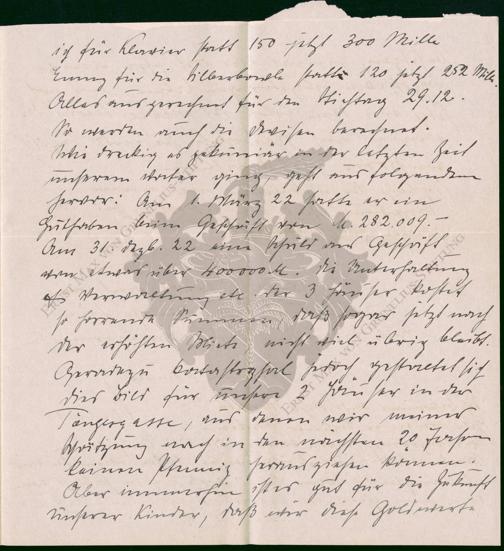 ich für Klavier statt 150 jetzt 300 Mille
Emmy für die Silberbowle statt 120 jetzt 252 Mille.
Alles ausgerechnet für den Stichtag 29.12.
So werden auch die Devisen berechnet.
Wie dreckig es pekuniär in der letzten Zeit
unserem Vater ging geht aus folgendem
hervor: Am 1. März 22 hatte er ein
Guthaben beim Geschäft von M. 282.009.–
Am 31. Dezb. 22 eine Schuld ans Geschäft
von etwas über 400000 M. Die Unterhaltung
Verwaltung etc. der 3 Häuser kostet
so horrende Summen, daß sogar jetzt nach
der erhöhten Miete nicht viel übrig bleibt.
Geradezu katastrophal jedoch gestaltet sich
dies Bild für unsere 2 Häuser in der
aus denen wir meiner
Schätzung nach in den nächsten 20 Jahren
keinen Pfennig herausziehen können.
Aber immerhin ist es gut für die Zukunft
unserer Kinder, daß wir diese Goldwerte